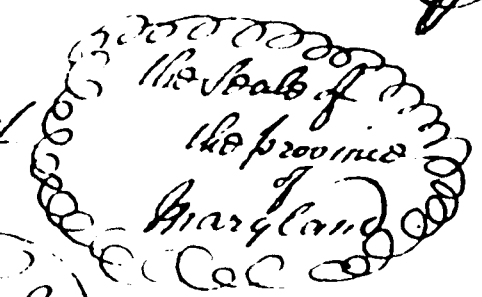 the Seale of
the province
of
Maryland